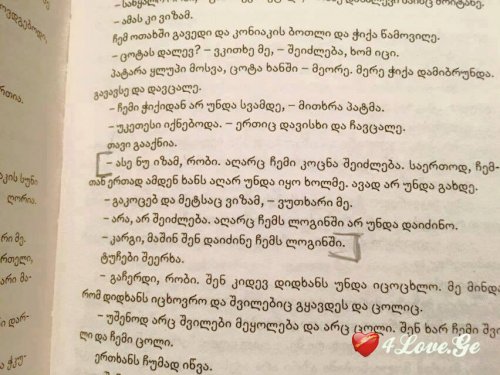 – ამას კი ვიზამ.
ჩემ ოთახში გავედი და კონიაკის ბოთლი და ჭიქა წამოვიღე.
– ცოტას დალევ? – ვკითხე მე, – შეიძლება, ხომ იცი.
პატარა ყლუპი მოსვა, ცოტა ხანში – მეორე. მერე ჭიქა დამიბრუნდა.
გავავსე და დავცალე.
– ჩემი ჭიქიდან არ უნდა სვამდე, – მითხრა პატმა.
– უკეთესი იქნებოდა. – ერთიც დავისხი და ჩავცალე.
თავი გააქნია.
– ასე ნუ იზამ, რობი. აღარც ჩემი კოცნა შეიძლება. საერთოდ, ჩემ-
თან ერთად ამდენ ხანს აღარ უნდა იყო ხოლმე. ავად არ უნდა გახდე.
– გაკოცებ და მეტსაც ვიზამ, – ვუთხარი მე.
– არა, არ შეიძლება. აღარც ჩემს ლოგინში არ უნდა დაიძინო.
– კარგი, მაშინ შენ დაიძინე ჩემს ლოგინში.
ტუჩები შეერხა.
– გაჩერდი, რობი. შენ კიდევ დიდხანს უნდა იცოცხლო. მე მინდა
რომ დიდხანს იცხოვრო და შვილებიც გყავდეს და ცოლიც.
– უშენოდ არც შვილები მეყოლება და არც ცოლი. შენ ხარ ჩემი შვი-
ლი და ჩემი ცოლი.
ერთხანს ჩუმად იწვა.
4Love.Ge